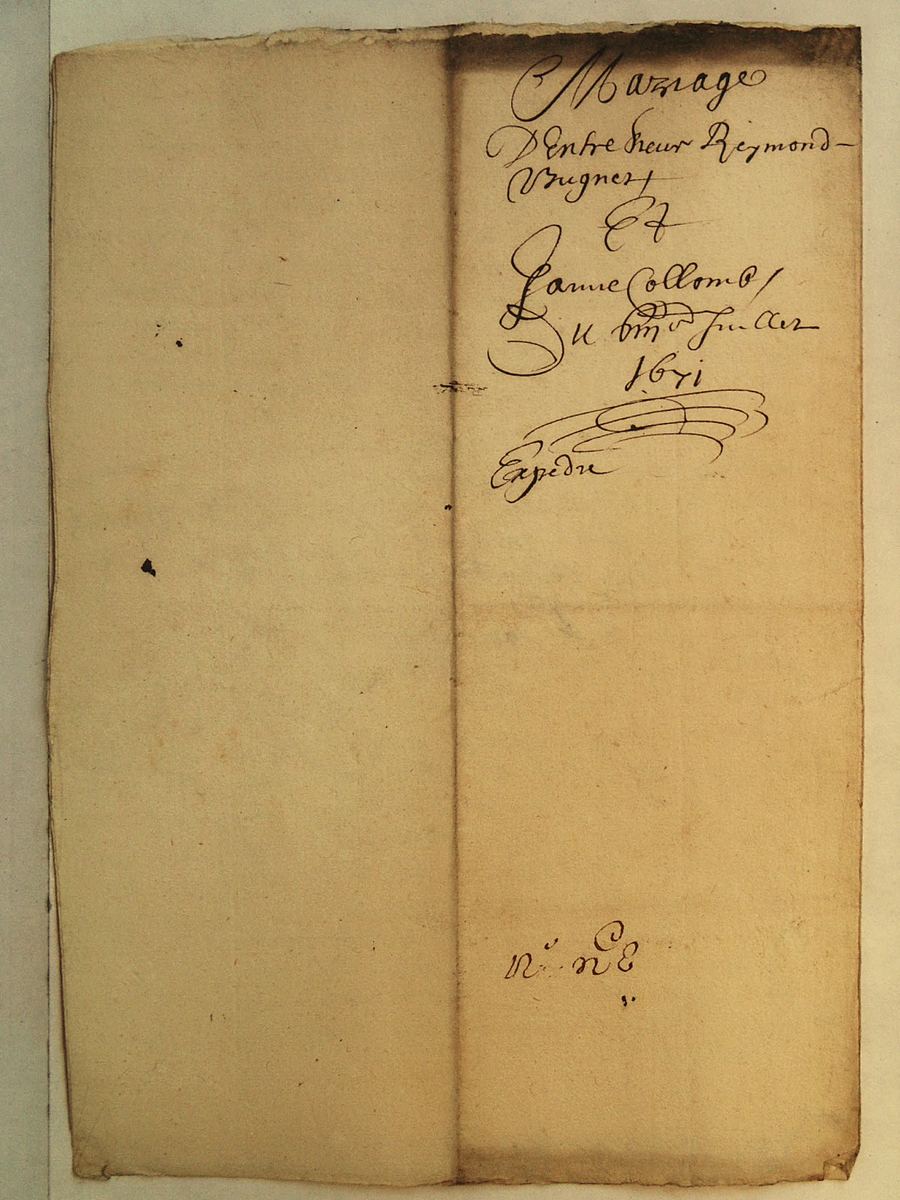 Mariage
D Entre sieur Reymond
Bugnet
Et
Janne Collomb
Du viij.e Juillet
1671
Expedie